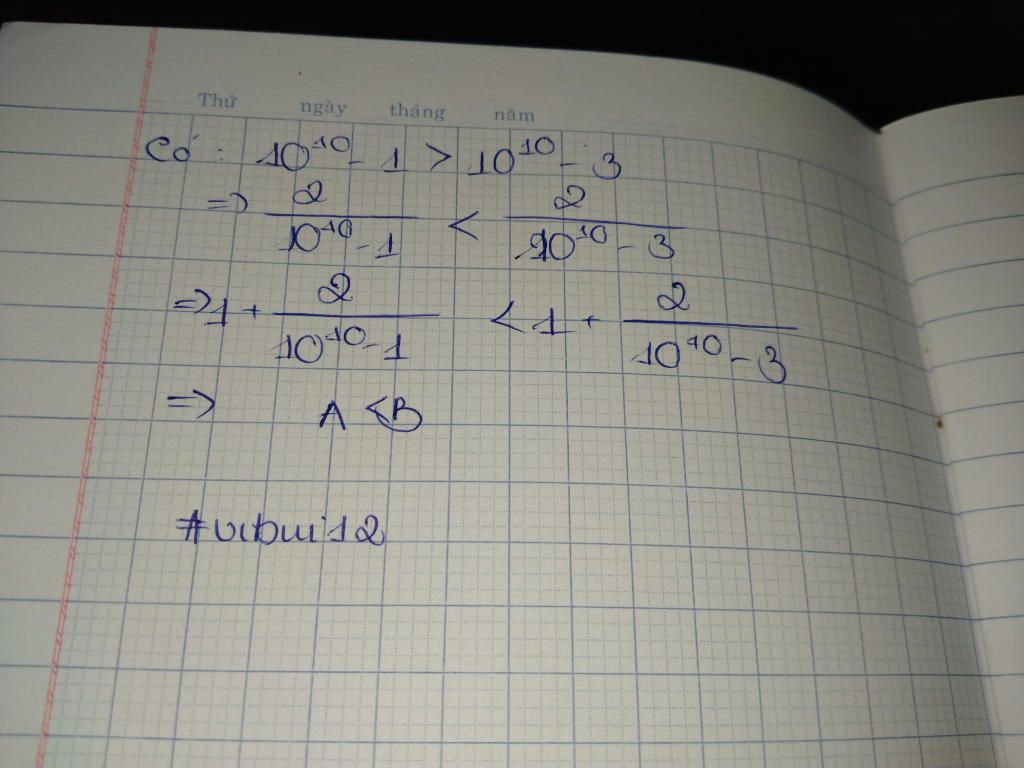 Thứ ngày tháng năm
Có: 10^10 - 1 > 10^10 - 3
=> 2/(10^10 - 1) < 2/(10^10 - 3)
=> 1 + 2/(10^10 - 1) < 1 + 2/(10^10 - 3)
=> A < B